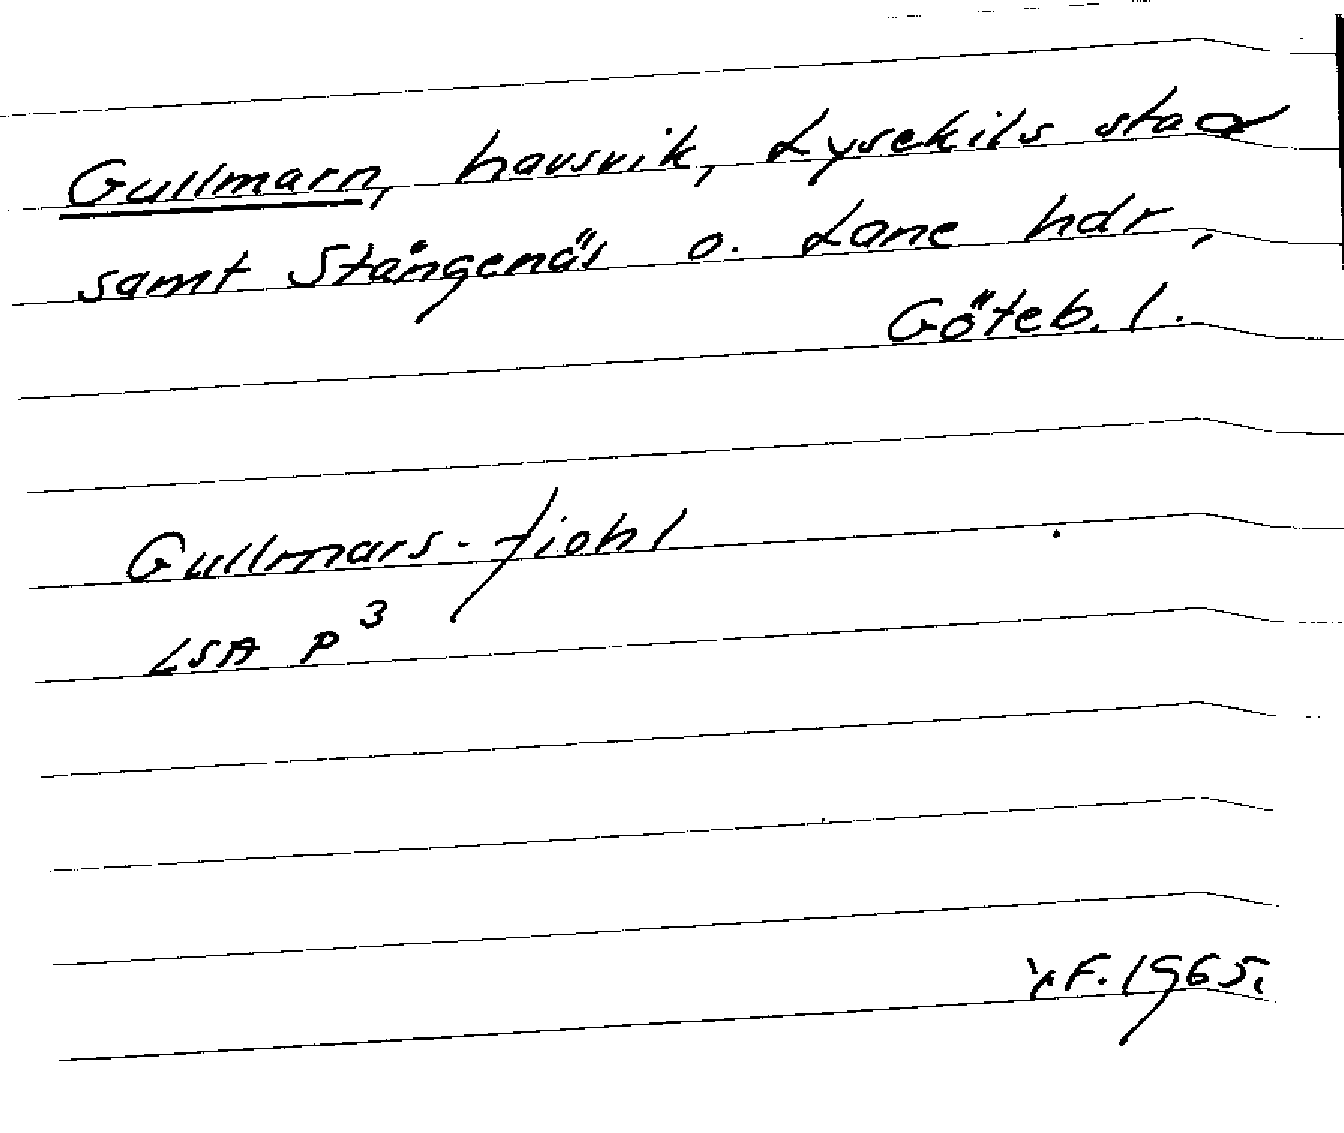 Gullmarn, havsvik, Lysekils stad
samt Stångenäs o. Lane hdr,
Göteb. l.
Gullmars-fiohl
LSA P 3
F. 1965.